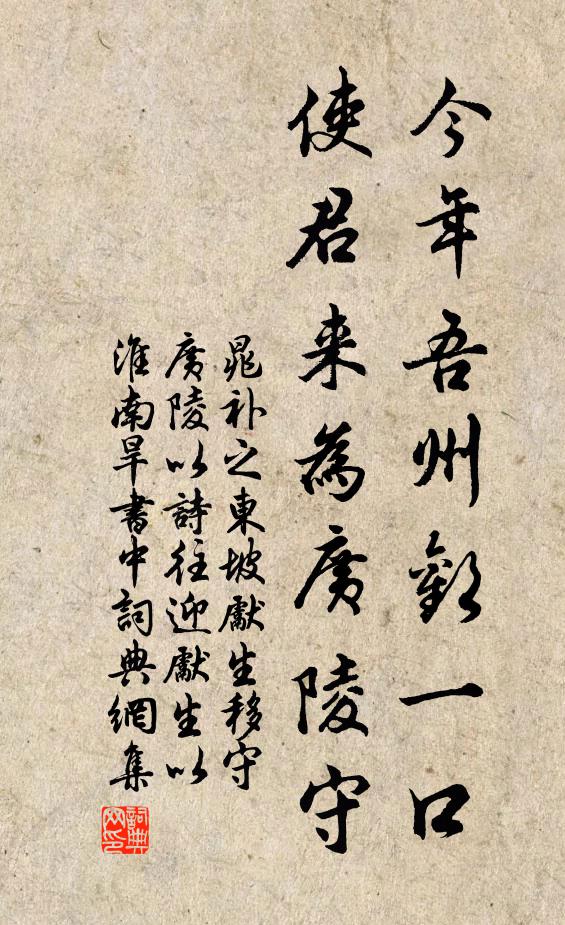 今年吾州歡一口
使君来為廣陵守
晁补之東坡獻生移守
廣陵以詩往迎獻生以
淮南旱書中詞典網集
詞典网印